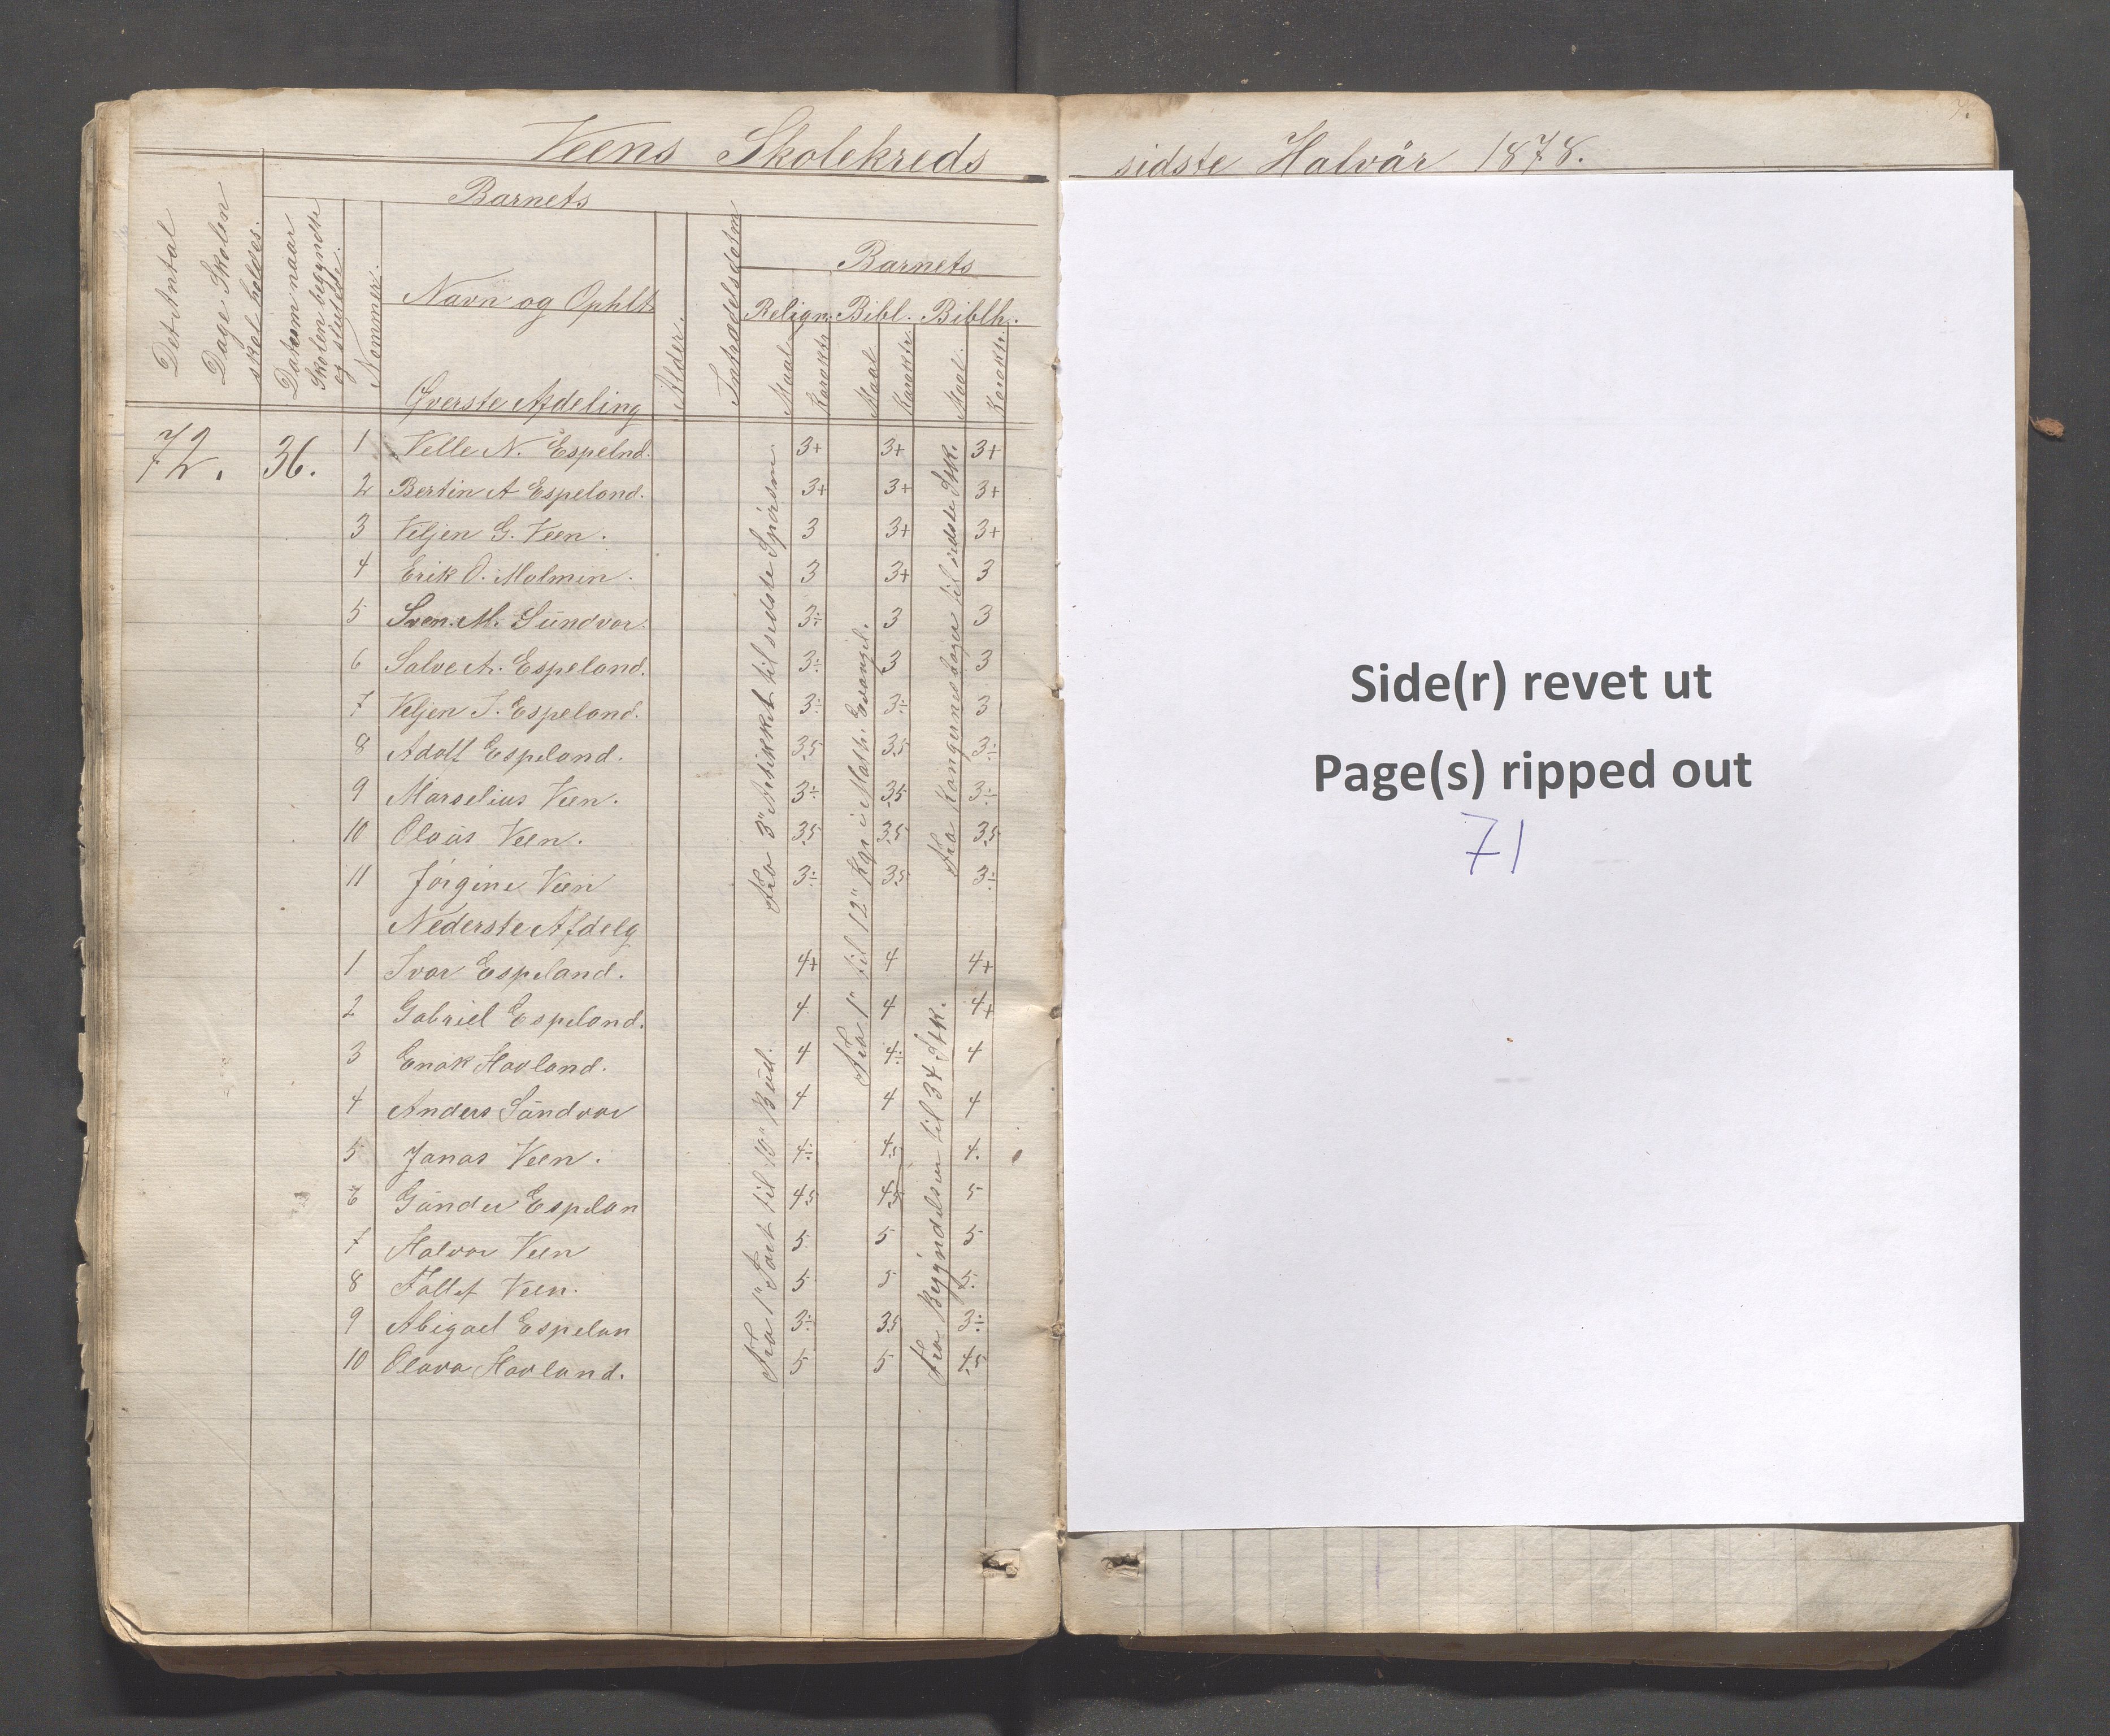 Veens Skolekreds sidste Halvår 1878.
Det Antal Dage Skolen skal holdes.
Datum naar Skolen begyndte og sluttede.
Nommer.
Barnets
Navn og Ophlt
Øverste Afdeling
Alder.
Indtrædelsdatm
Barnets
Relign. Bibl. Biblh.
Maal. Karaktr. Maal Karaktr. Maal. Karaktr.
72. 36.
1 Velle N. Espelnd. 3+ 3+ 3+
2 Bertin A Espeland. 3+ 3+ 3+
3 Viljen G. Veen. 3 3+ 3+
4 Erik O. Malmin. 3 3+ 3
5 Sven. M. Sündvor. 3÷ 3 3
6 Salve A. Espeland. 3÷ 3 3
7 Veljen S. Espeland. 3÷ 3÷ 3
8 Adolf Espeland. 3,5 3,5 3÷
9 Marselius Veen. 3÷ 3,5 3÷
10 Olaüs Veen. 3,5 3,5 3,5
11 Jørgine Veen 3÷ 3,5 3÷
Fra 3" Artikkel til sidste Spørsm.
Fra 1" til 12" Kap i Math. Evangel.
Fra Kongernes Dager til sidste Stk.
Nederste Afdelg
1 Ivar Espeland. 4+ 4 4+
2 Gabriel Espeland. 4 4 4+
3 Enok Havland. 4 4÷ 4
4 Anders Sándvor 4 4 4
5 Janas Veen. 4÷ 4,5 4.
6 Gánder Espelan 4,5 4,5 5
7 Halvor Veen 5 5 5
8 Tallef Veen. 5 5 5.
9 Abigael Espelan 3÷ 3,5 3÷
10 Olava Havland. 5 5 4,5
Fra 1" Part til 10" Bud.
Fra Begyndelsen til 34 Stk.
Side(r) revet ut
Page(s) ripped out
71